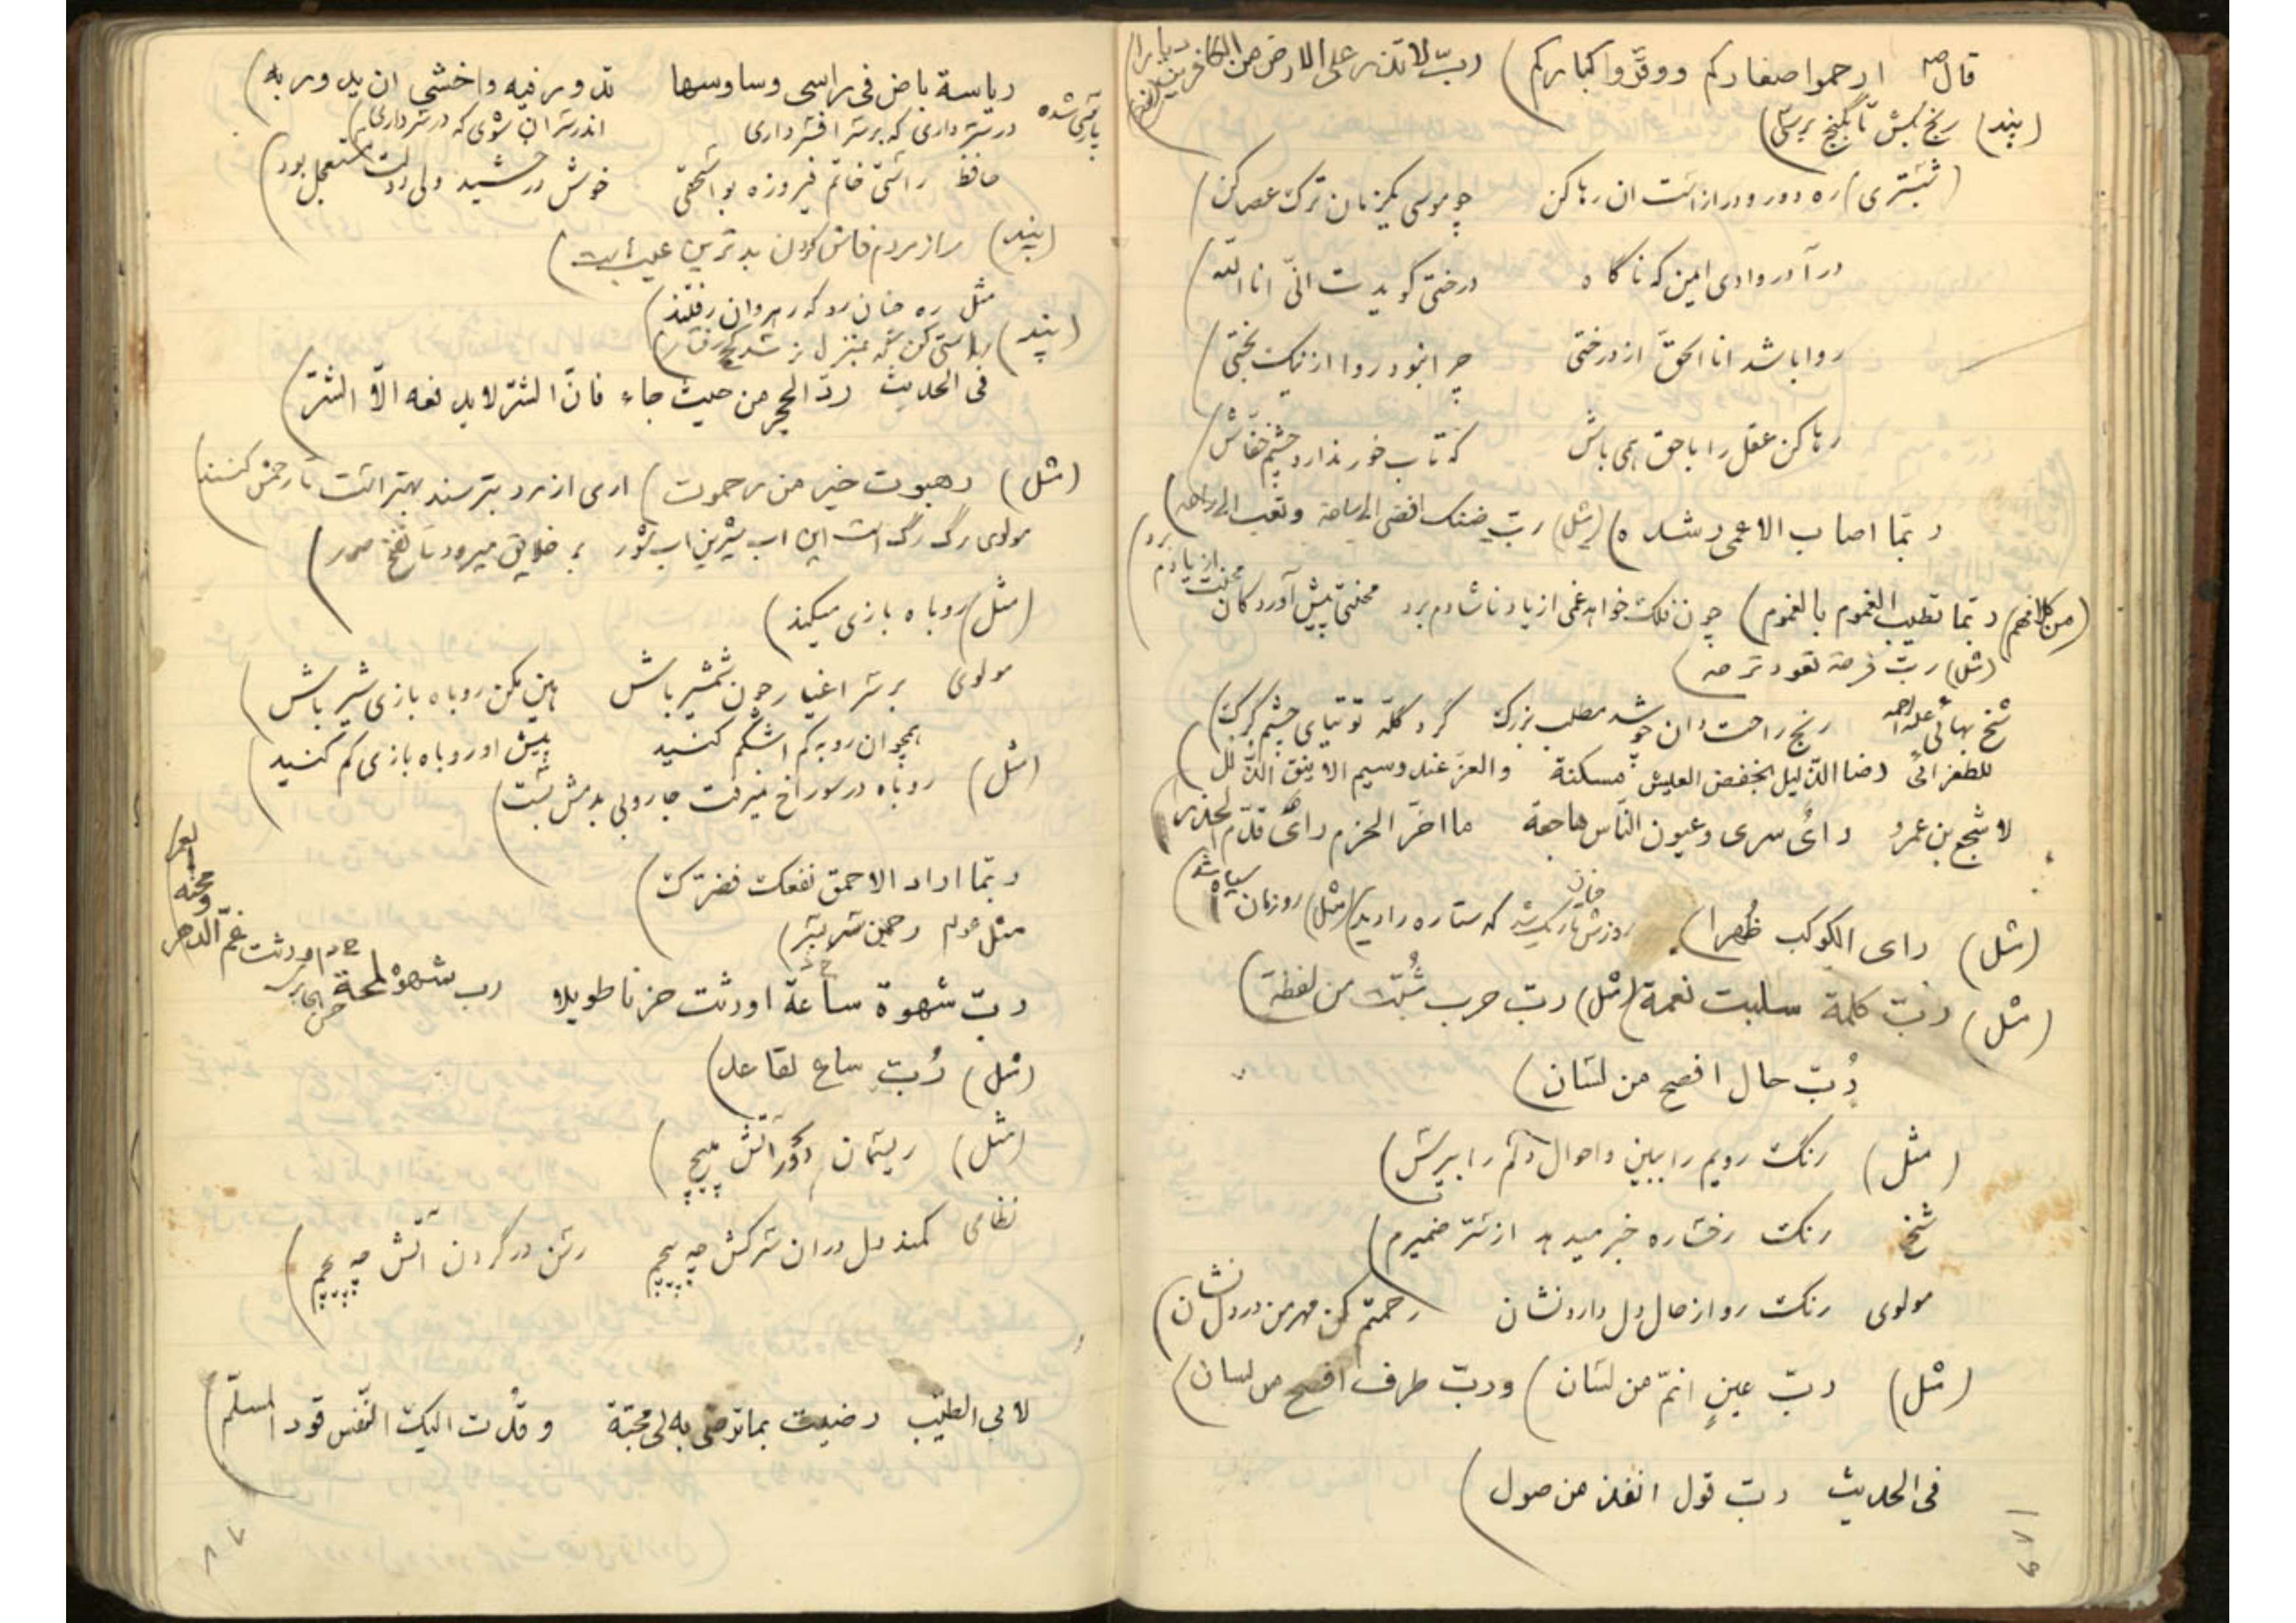 قال ص ارحموا صغارکم ووقّروا کبارکم) ربّ لا تذر علی الارض من الکافرین دیارا
(پند) رنج بکش تا بگنج برسی)
(شبستری) ره دور و دراز است ان رها کن چو موسی یکزمان ترک عصا کن)
در آ در وادی ایمن که ناگاه درختی گویدت انّی انا اللّه)
روا باشد انا الحقّ از درختی چرا نبود روا از نیک بختی)
رها کن عقل را با حق همی باش که تاب خور ندارد چشم خفّاش)
ربّما اصاب الاعمی رشده) (مثل) ربّ ضنک افضی الی ساحة وتعب الی راحة)
(من کلامهم) ربّما تطیب الغموم بالغموم) چون فلک خواهد غمی از یاد ناشادم برد محنتی پیش آورد کان محنت از یادم برد
(مثل) ربّ فرحة تعود ترحة)
شیخ بهائی علیه الرحمه رنج راحت دان چو شد مطلب بزرگ گرد گلّه توتیای چشم گرگ)
للطغرائی رضا الذّلیل بخفض العیش مسکنة والعزّ عند رسیم الاینق الذّلل)
لاشجع بن عمرو رای سری وعیون النّاس هاجعة ما اخّر الحزم رای قدّم الحذرا)
(مثل) رای الکوکب ظُهرا) روزش چنان تاریک شد که ستاره را دید) (مثل) روزمان سیاه شد)
(مثل) ربّ کلمة سلبت نعمة) (مثل) ربّ حرب شُبّت من لفظة)
رُبّ حال افصح من لسان)
(مثل) رنگ رویم را ببین و احوال دلم را بپرس)
شیخ رنگ رخساره خبر میدهد از سّر ضمیرم)
مولوی رنگ رو از حال دل دارد نشان رحمتم کن مهر من در دل نشان)
(مثل) ربّ عینٍ انمّ من لسان) وربّ طرف افصح من لسان)
فی الحدیث ربّ قول انفذ من صول)
ریاسة باض فی راسی وساوسها تدور فیه واخشی ان یدور به)
در سر داری که بر سر افسر داری اندر سر ان شوی که در سر داری)
حافظ راستی خاتم فیروزه بواسحقی خوش درخشید ولی دولت مستعجل بود)
(پند) راز مردم فاش کردن بدترین عیب است)
مثل ره چنان رو که رهروان رفتند)
(پند) راستی کن که بمنزل نرسد کج رفتار)
فی الحدیث ردّ الحجر من حیث جاء فانّ الشّر لا یدفعه الّا الشّر)
(مثل) رهبوت خیر من رحموت) اری از مرد بترسند بهتر است تا رحمش کنند)
مولوی رگ رگ است این اب شیرین اب شور بر خلایق میرود تا نفخ صور)
(مثل) روباه بازی میکند)
مولوی بر سر اغیار چون شمشیر باش هین مکن روباه بازی شیر باش)
همچو ان روبه کم اشکم کنید پیش او روباه بازی کم کنید)
(مثل) روباه در سوراخ نمیرفت جاروبی بدمش بست)
ربّما اراد الاحمق نفعک فضرّک)
ربّ شهوة ساعة اورثت حزنا طویلا رب شهوة لمحة اورثت غمّ الدهر
(مثل) رُبّ ساع لقاعد)
(مثل) ریسمان در آتش مپیچ)
نظامی کمند دل در ان سرکش چه پیچم رسن در گردن آتش چه پیچم)
لابی الطّیب رضیت بما ترضی به لی محبّة وقُدت الیک النّفس قود المسلّم)